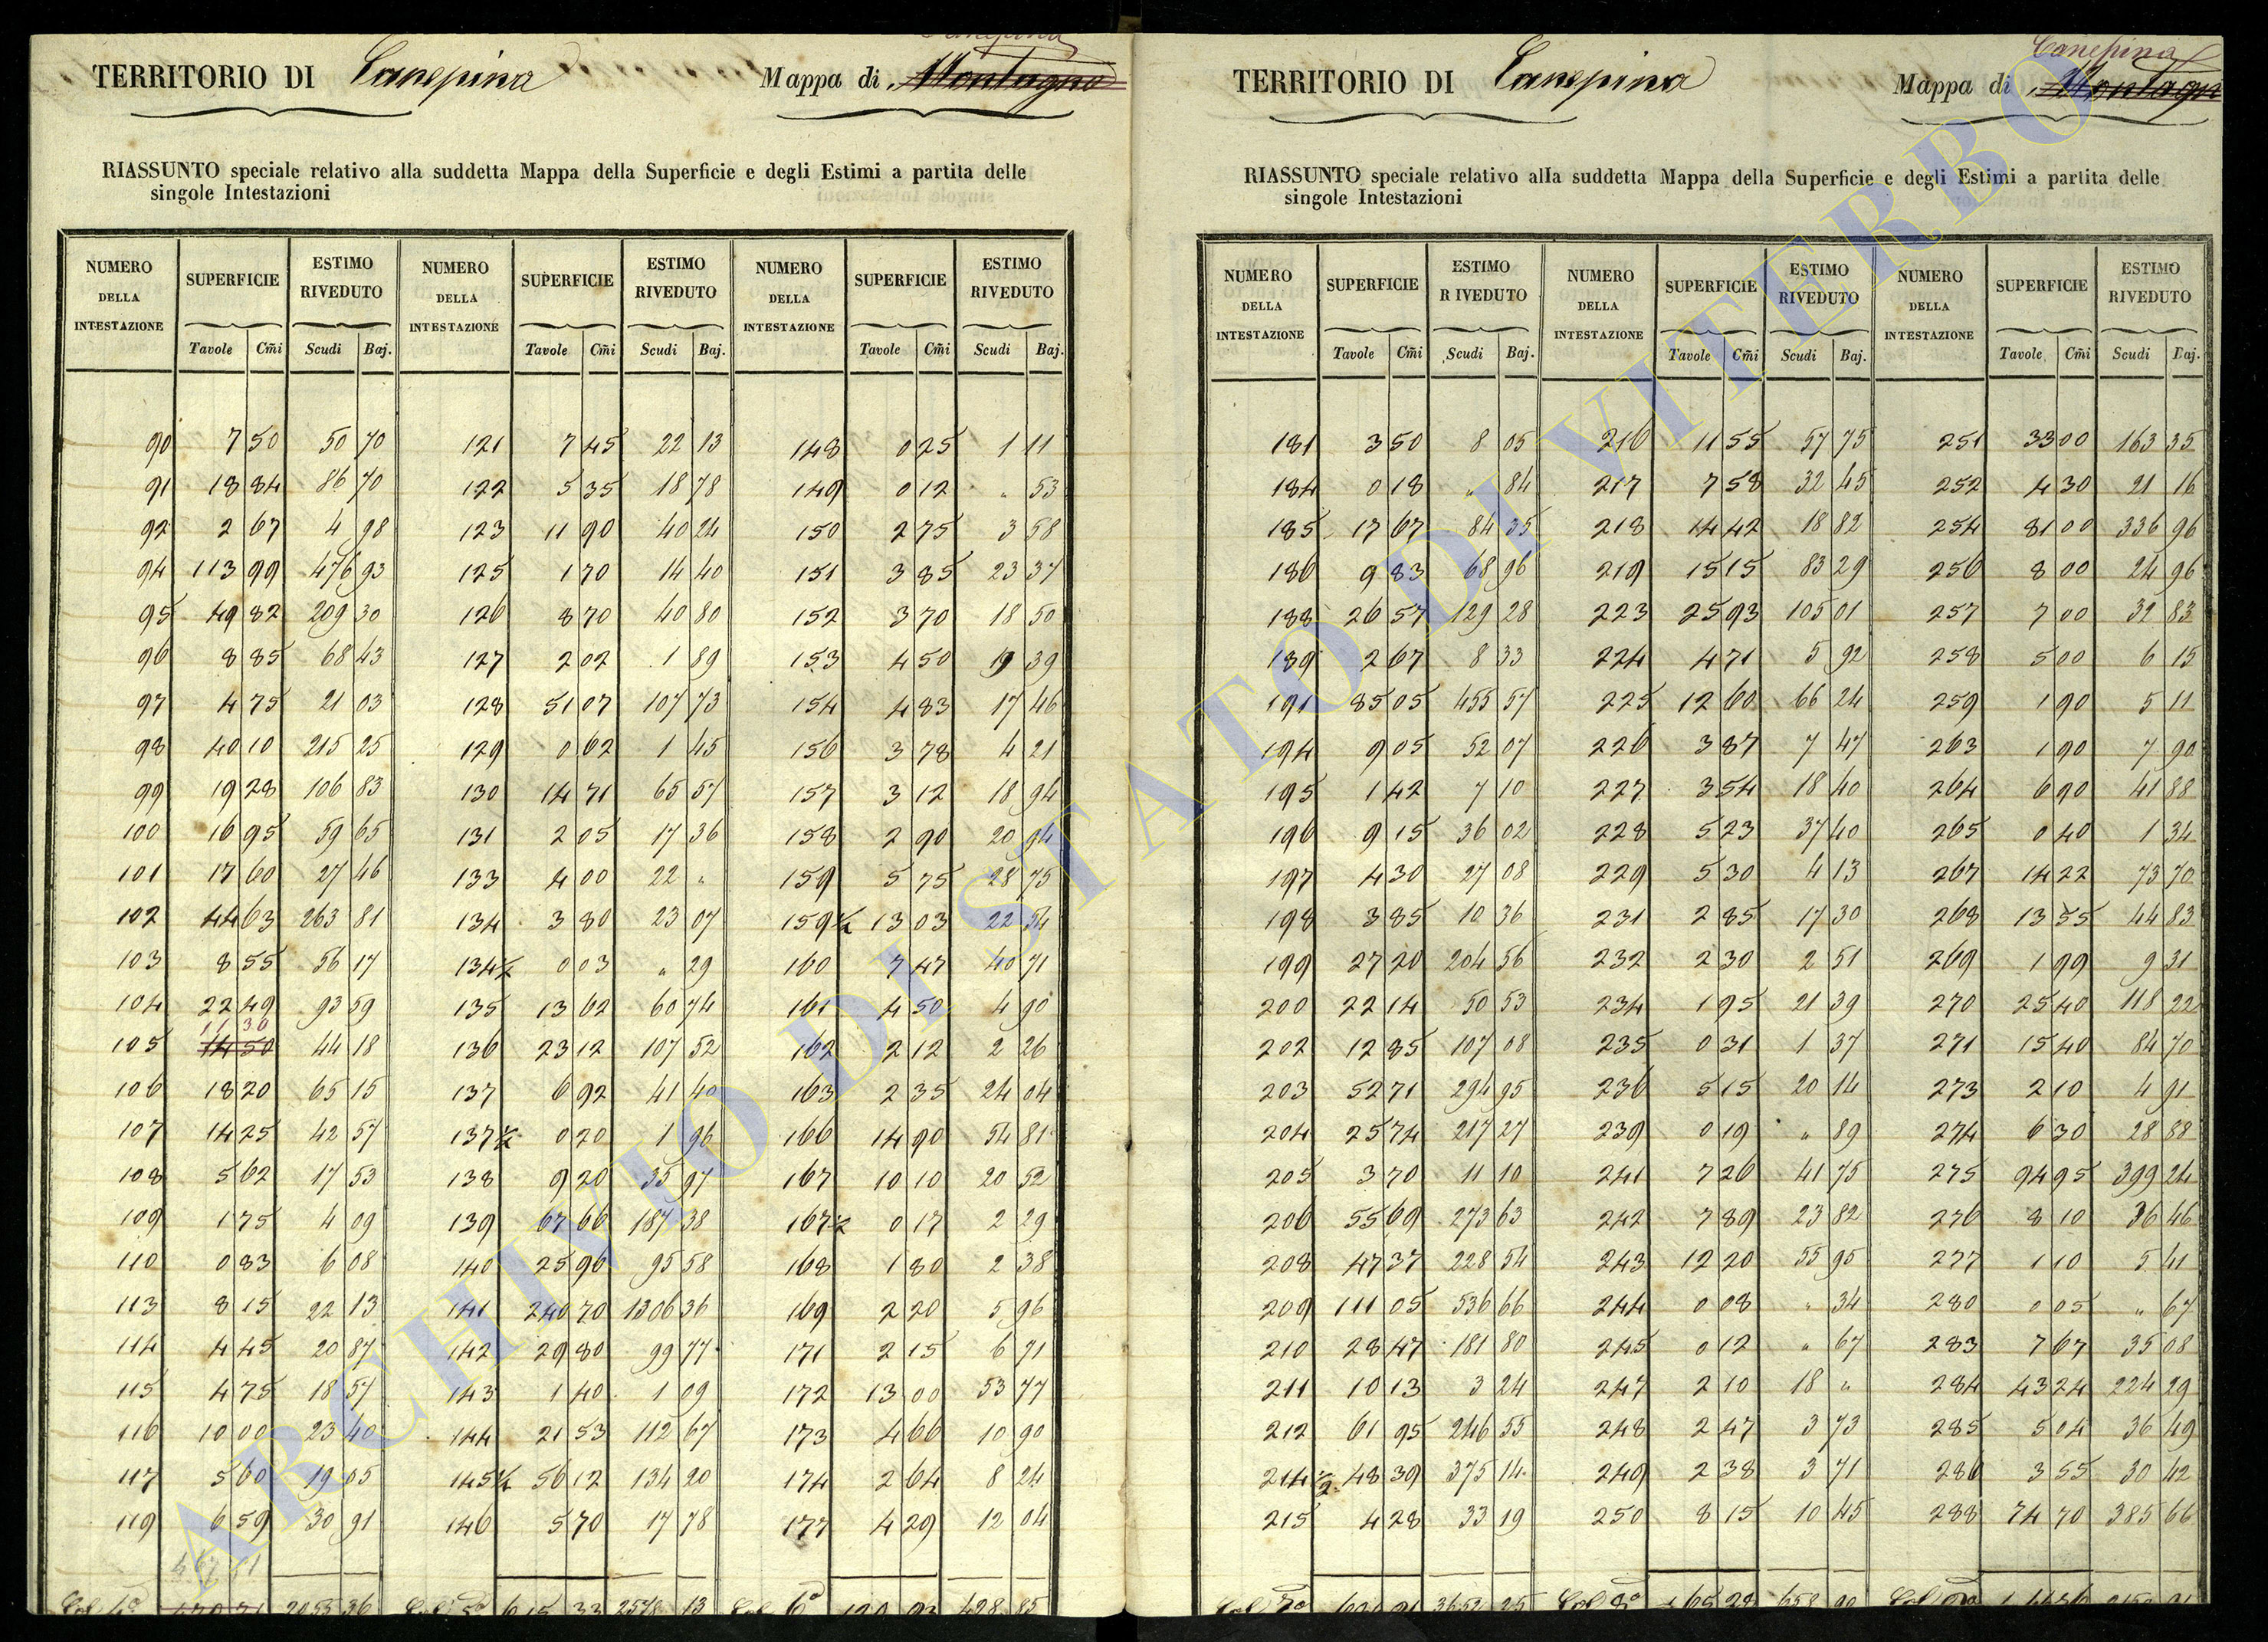 TERRITORIO DI Canepina Mappa di Montagna Canepina
RIASSUNTO speciale relativo alla suddetta Mappa della Superficie e degli Estimi a partita delle
singole Intestazioni
NUMERO DELLA INTESTAZIONE SUPERFICIE ESTIMO RIVEDUTO NUMERO DELLA INTESTAZIONE SUPERFICIE ESTIMO RIVEDUTO NUMERO DELLA INTESTAZIONE SUPERFICIE ESTIMO RIVEDUTO
Tavole Cm̃i Scudi Baj. Tavole Cm̃i Scudi Baj. Tavole Cm̃i Scudi Baj.
90 7 50 50 70 121 7 45 22 13 148 0 25 1 11
91 18 84 86 70 122 5 35 18 78 149 0 12 " 53
92 2 67 4 98 123 11 90 40 24 150 2 75 3 58
94 113 99 476 93 125 1 70 14 40 151 3 85 23 37
95 49 82 209 30 126 8 70 40 80 152 3 70 18 50
96 8 85 68 43 127 2 02 1 89 153 4 50 19 39
97 4 75 21 03 128 51 07 107 73 154 4 83 17 46
98 40 10 215 25 129 0 62 1 45 156 3 78 4 21
99 19 28 106 83 130 14 71 65 57 157 3 12 18 94
100 16 95 59 65 131 2 05 17 36 158 2 90 20 94
101 17 60 27 46 133 4 00 22 " 159 5 75 28 75
102 44 63 263 81 134 3 80 23 07 159½ 13 03 22 54
103 8 55 56 17 134½ 0 03 " 29 160 7 47 40 71
104 22 49 93 59 135 13 62 60 74 161 4 50 4 90
11 30
105 14 50 44 18 136 23 12 107 52 162 2 12 2 26
106 18 20 65 15 137 6 92 41 40 163 2 35 24 04
107 14 25 42 57 137½ 0 20 1 96 166 14 90 54 81
108 5 62 17 53 138 9 20 35 97 167 10 10 20 52
109 1 75 4 09 139 67 66 187 38 167½ 0 17 2 29
110 0 83 6 08 140 25 96 95 58 168 1 80 2 38
113 8 15 22 13 141 240 70 1306 36 169 2 20 5 96
114 4 45 20 87 142 29 80 99 77 171 2 15 6 71
115 4 75 18 57 143 1 40 1 09 172 13 00 53 77
116 10 00 23 40 144 21 53 112 67 173 4 66 10 90
117 5 60 19 05 145½ 56 12 134 20 174 2 64 8 24
119 6 59 30 91 146 5 70 17 78 177 4 29 12 04
2055 36 615 33 2578 13 6ª 120 93 428 85
TERRITORIO DI Canepina Mappa di Montagna Canepina
RIASSUNTO speciale relativo alla suddetta Mappa della Superficie e degli Estimi a partita delle
singole Intestazioni
NUMERO DELLA INTESTAZIONE SUPERFICIE ESTIMO RIVEDUTO NUMERO DELLA INTESTAZIONE SUPERFICIE ESTIMO RIVEDUTO NUMERO DELLA INTESTAZIONE SUPERFICIE ESTIMO RIVEDUTO
Tavole Cm̃i Scudi Baj. Tavole Cm̃i Scudi Baj. Tavole Cm̃i Scudi Baj.
181 3 50 8 05 216 11 55 57 75 251 33 00 163 35
184 0 18 " 84 217 7 58 32 45 252 4 30 21 16
185 17 67 84 35 218 14 42 18 82 254 81 00 336 96
186 9 83 68 96 219 15 15 83 29 256 8 00 24 96
188 26 57 129 28 223 25 93 105 01 257 7 00 32 83
189 2 67 8 33 224 4 71 5 92 258 5 00 6 15
191 85 05 455 57 225 12 60 66 24 259 1 90 5 11
194 9 05 52 07 226 3 87 7 47 263 1 90 7 90
195 1 42 7 10 227 3 54 18 40 264 6 90 41 88
196 9 15 36 02 228 5 23 37 40 265 0 40 1 34
197 4 30 27 08 229 5 30 4 13 267 14 22 73 70
198 3 85 10 36 231 2 85 17 30 268 13 55 44 83
199 27 20 204 56 232 2 30 2 51 269 1 99 9 31
200 22 14 50 53 234 1 95 21 39 270 25 40 118 22
202 12 85 107 08 235 0 31 1 37 271 15 40 84 70
203 52 71 294 95 236 5 15 20 14 273 2 10 4 91
204 25 74 217 27 239 0 19 " 89 274 6 30 28 88
205 3 70 11 10 241 7 26 41 75 275 94 95 399 24
206 55 69 273 63 242 7 89 23 82 276 8 10 36 46
208 47 37 228 54 243 12 20 55 95 277 1 10 5 41
209 111 05 536 66 244 0 08 " 34 280 0 05 " 67
210 28 47 181 80 245 0 12 " 67 283 7 67 35 08
211 10 13 3 24 247 2 10 18 " 284 43 24 224 29
212 61 95 246 55 248 2 47 3 73 285 5 04 36 49
214½ 48 39 375 14 249 2 38 3 71 286 3 55 30 42
215 4 28 33 19 250 8 15 10 45 288 74 70 385 66
3652 25 165 28 658 90
ARCHIVIO DI STATO DI VITERBO